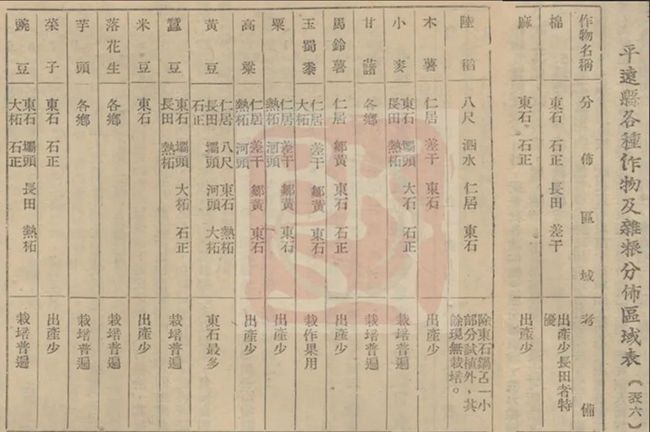 平遠縣各種作物及雜粮分佈區域表（表六）
作物名稱 分佈區域 考備
棉 東石 石正 長田 差干 出產少長田者特優
麻 東石 石正 出產少
陸稻 八尺 泗水 仁居 東石 除東石鍋叾一小部分試植外，其餘現無栽培。
木薯 仁居 差干 東石 出產少
小麥 東石 壩頭 大柘 石正 長田 熱柘 栽培普遍
甘藷 各鄉 栽培普遍
馬鈴薯 仁居 鄒黃 東石 石正 出產少
玉蜀黍 仁居 差干 鄒黃 東石 大柘 栽作果用
粟 仁居 差干 鄒黃 東石 熱柘 河頭 出產少
高粱 仁居 差干 鄒黃 東石 熱柘 河頭 出產少
黃豆 仁居 八尺 東石 熱柘 長田 壩頭 河頭 大柘 石正 東石最多
蠶豆 東石 壩頭 大柘 石正 長田 熱柘 栽培普遍
米豆 東石 出產少
落花生 各鄉 栽培普遍
芋頭 各鄉 栽培普遍
菜子 東石 石正 出產少
豌豆 東石 壩頭 長田 熱柘 大柘 石正 栽培普遍